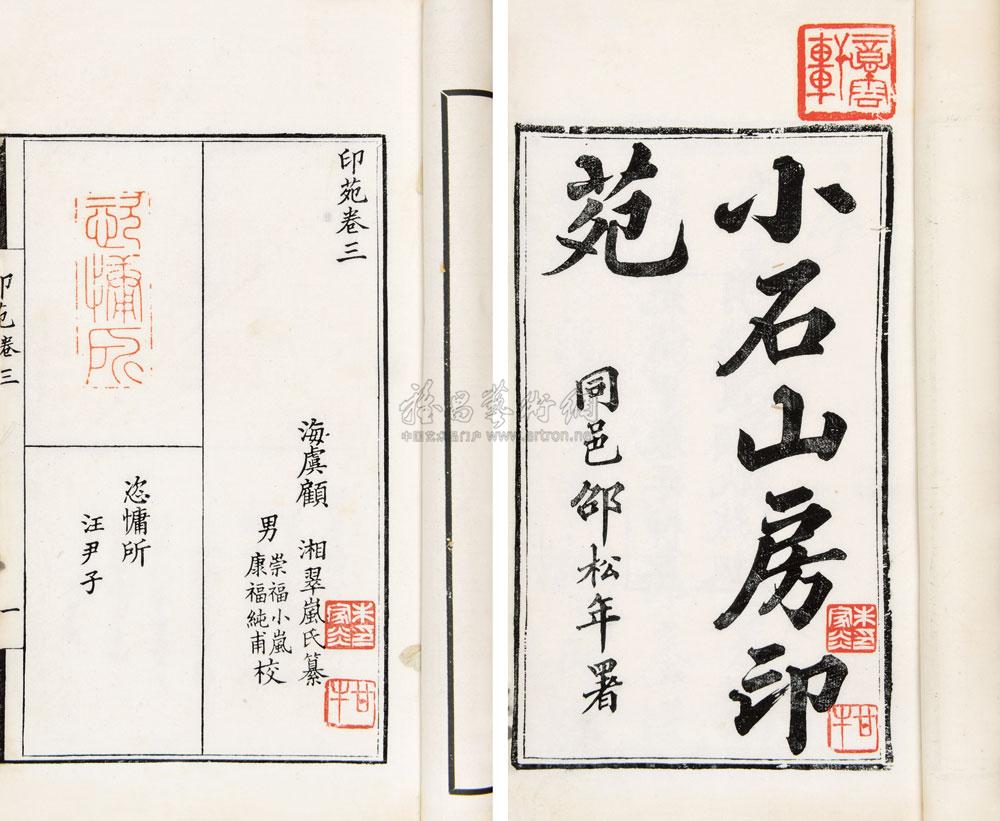 小石山房印
苑
同邑邵松年署
印苑卷三
海虞顧 湘翠嵐氏纂
男 崇福小嵐
康福純甫 校
恣慵所
恣慵所
汪尹子
印苑卷三
一
雅昌藝術網
中国艺术品门户 www.artron.net